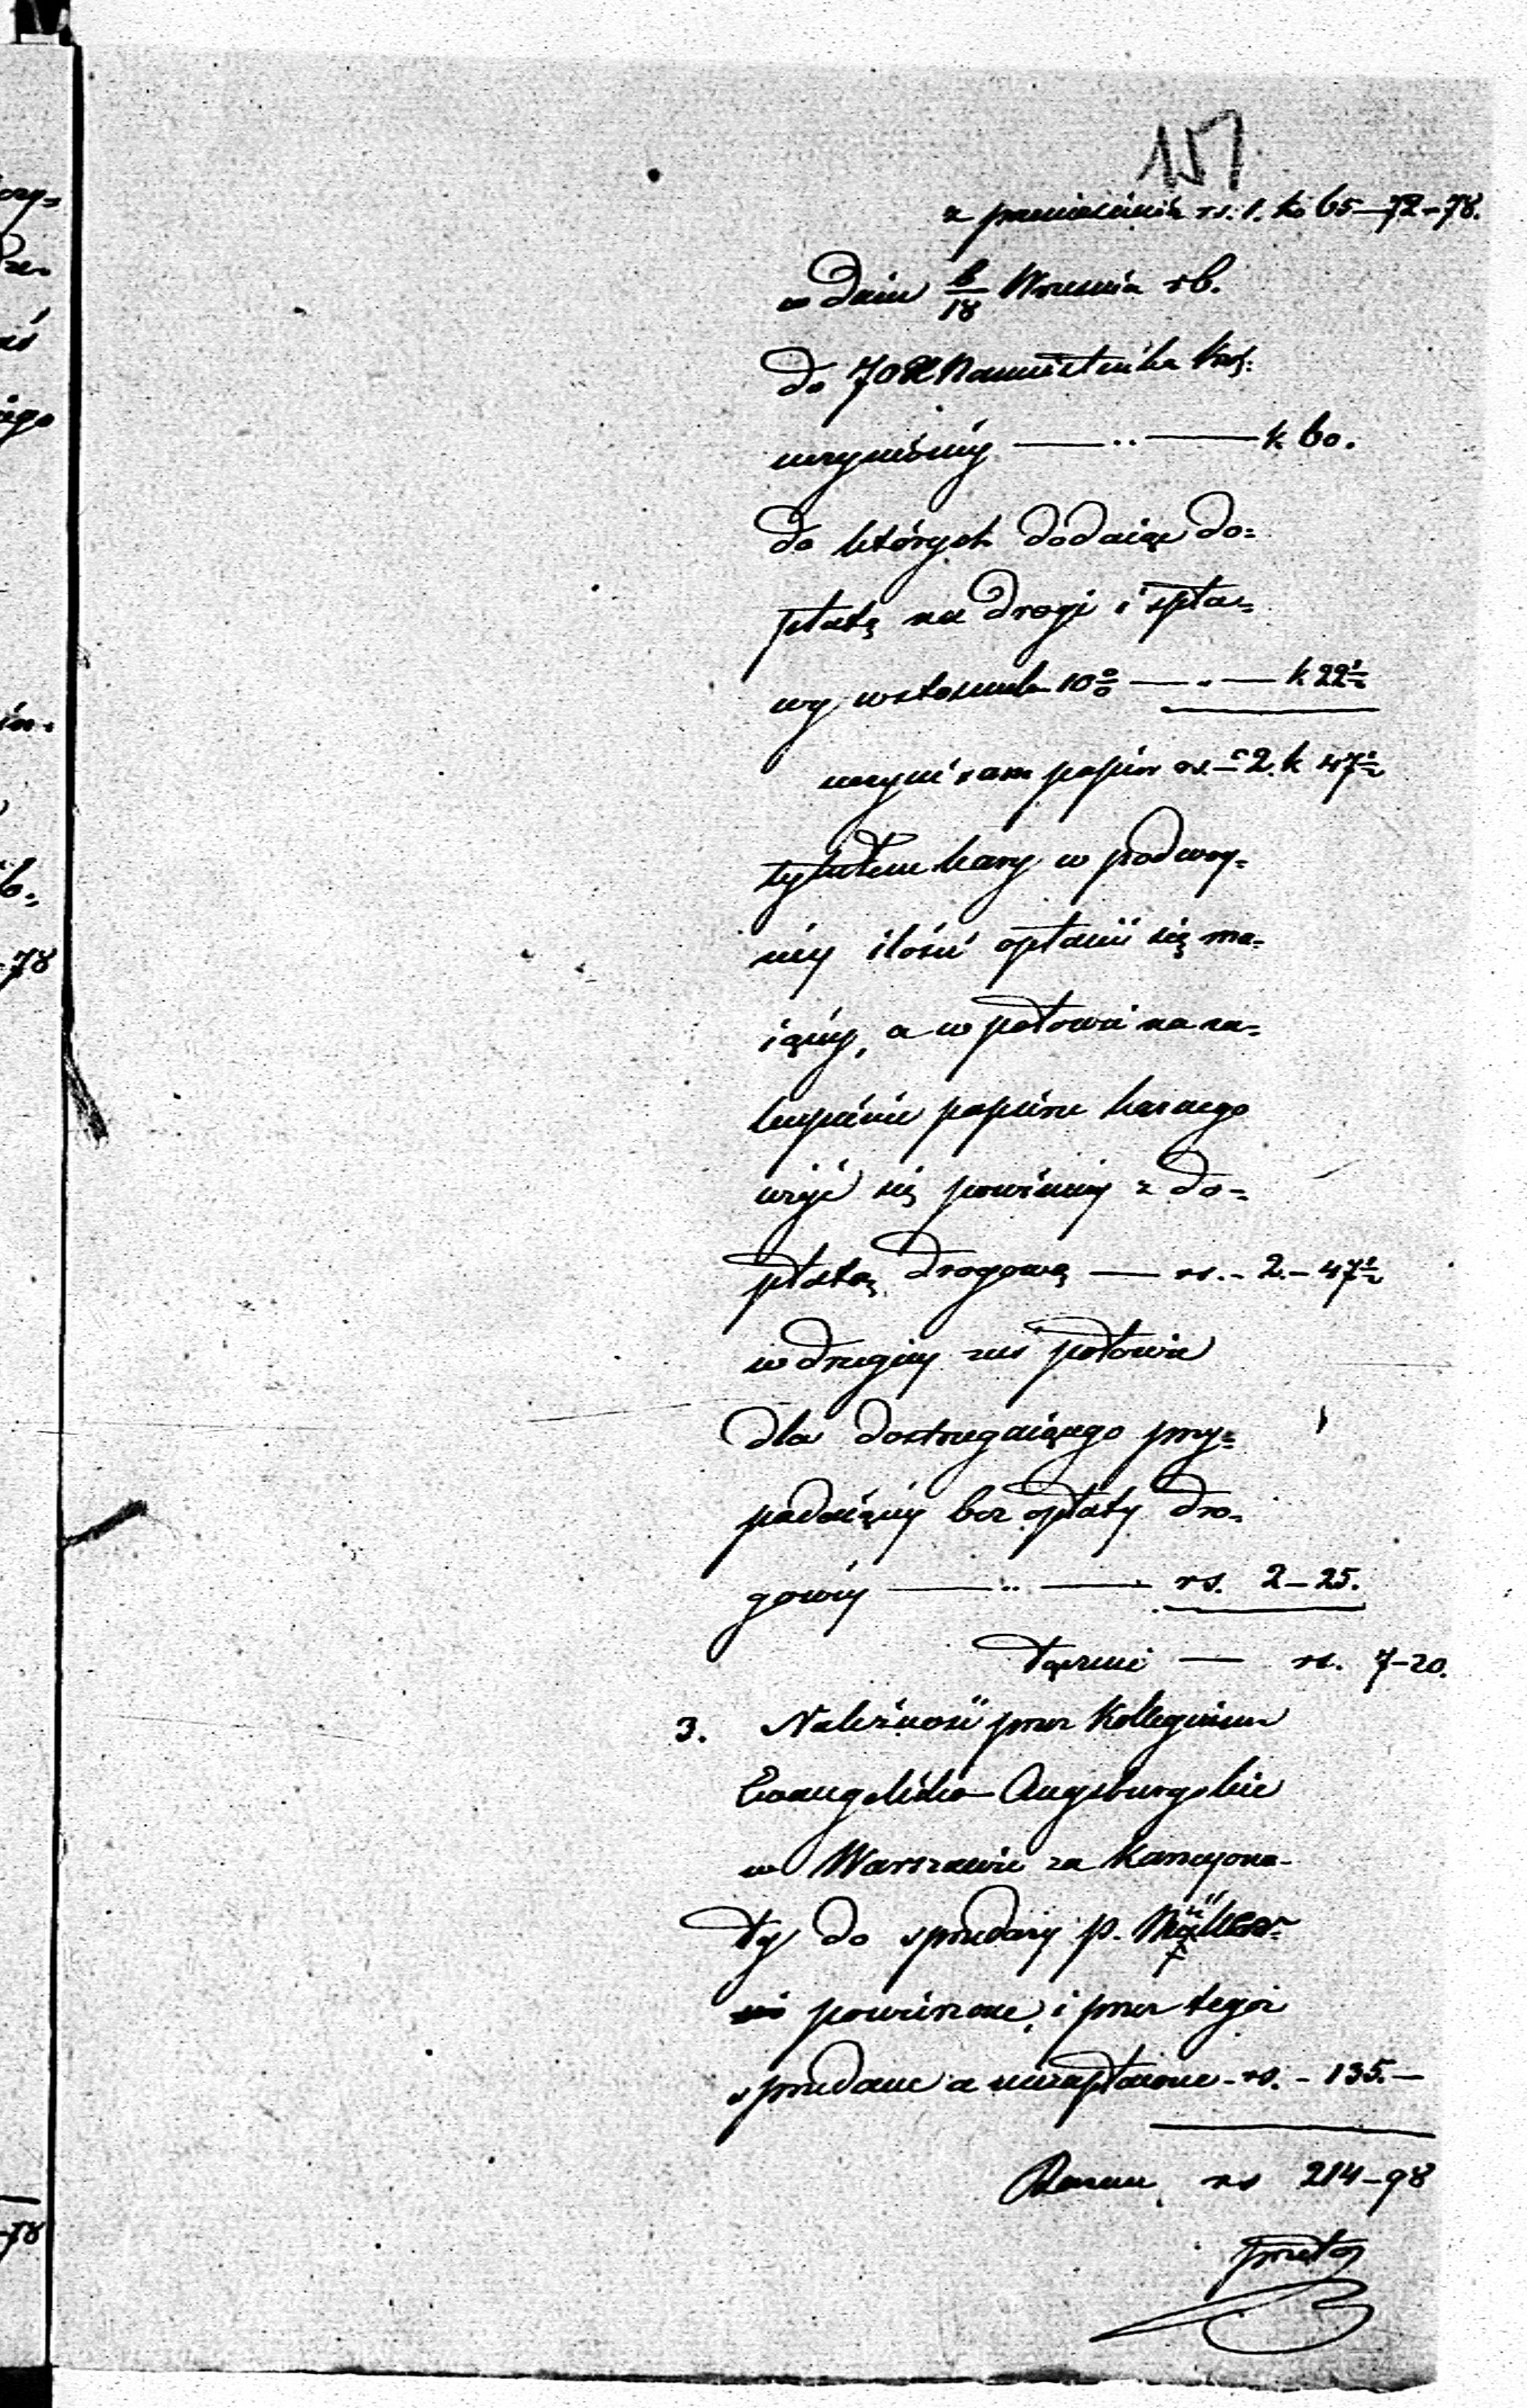 157
z przeniesienia rs. 1. k. 65—72-78.
w dniu 6/18 Września rb.
do 70 Namiestnika Kró:
uczynioney —— .. —— k 60.
do których dodaiąc do=
płatę na drogi i spła=
wy w stosunku 10% —— „ —— k 22½
uczyni sam papier rs. - 2. k 47½
tytułem kary w podwóy=
ney ilości opłacić się ma=
iącey, a w połowie na za=
kupienie papieru karnego
użyć się powinney z do=
płatą drogową —— rs. - 2. - 47½
w drugiey zaś połowie
dla dostrzegaiącego przy=
padaiącey bez opłaty dro=
gowey —— .. —— rs. 2-25.
łącznie — rs. 7-20.
3. Należność przez Kollegium
Ewangelicko-Augsburgskie
w Warszawie za Kancyona-
ły do sprzedaży p. Müller
powierzone, i przez tegoż
sprzedane a niezapłacone - rs. - 135. —
Razem rs 214-98